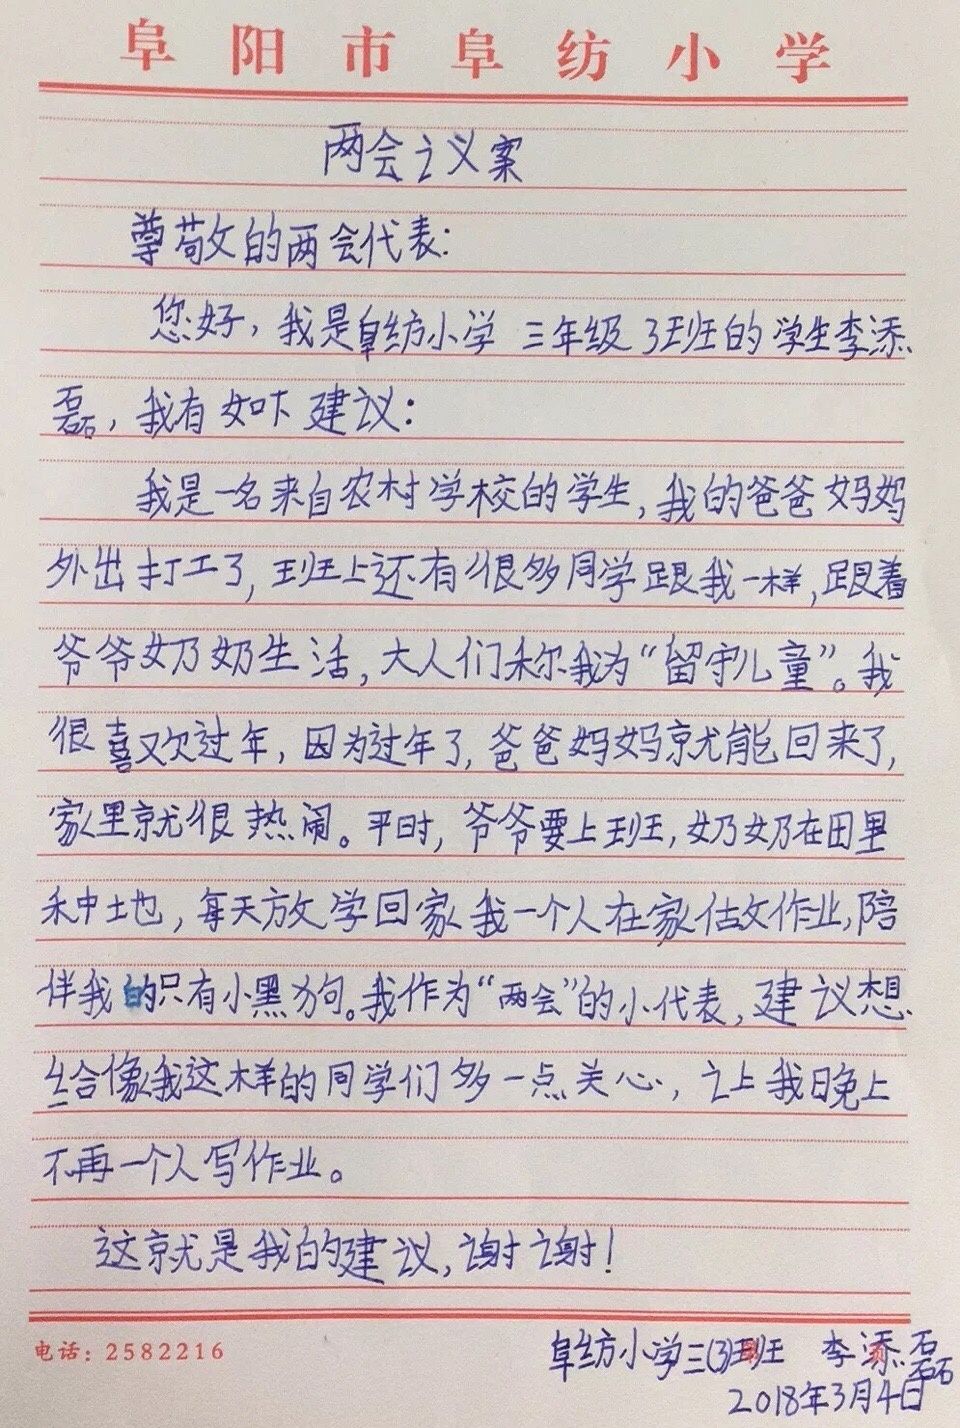 阜阳市阜纺小学
两会议案
尊敬的两会代表：
您好，我是阜纺小学三年级3班的学生李添
磊，我有如下建议：
我是一名来自农村学校的学生，我的爸爸妈妈
外出打工了，班上还有很多同学跟我一样，跟着
爷爷奶奶生活，大人们称我为“留守儿童”。我
很喜欢过年，因为过年了，爸爸妈妈就能回来了，
家里就很热闹。平时，爷爷要上班，奶奶在田里
种地，每天放学回家我一个人在家做作业，陪
伴我的只有小黑狗。我作为“两会”的小代表，建议想
给像我这样的同学们多一点关心，让我晚上
不再一个人写作业。
这就是我的建议，谢谢！
电话：2582216
阜纺小学三(3)班 李添磊
2018年3月4日